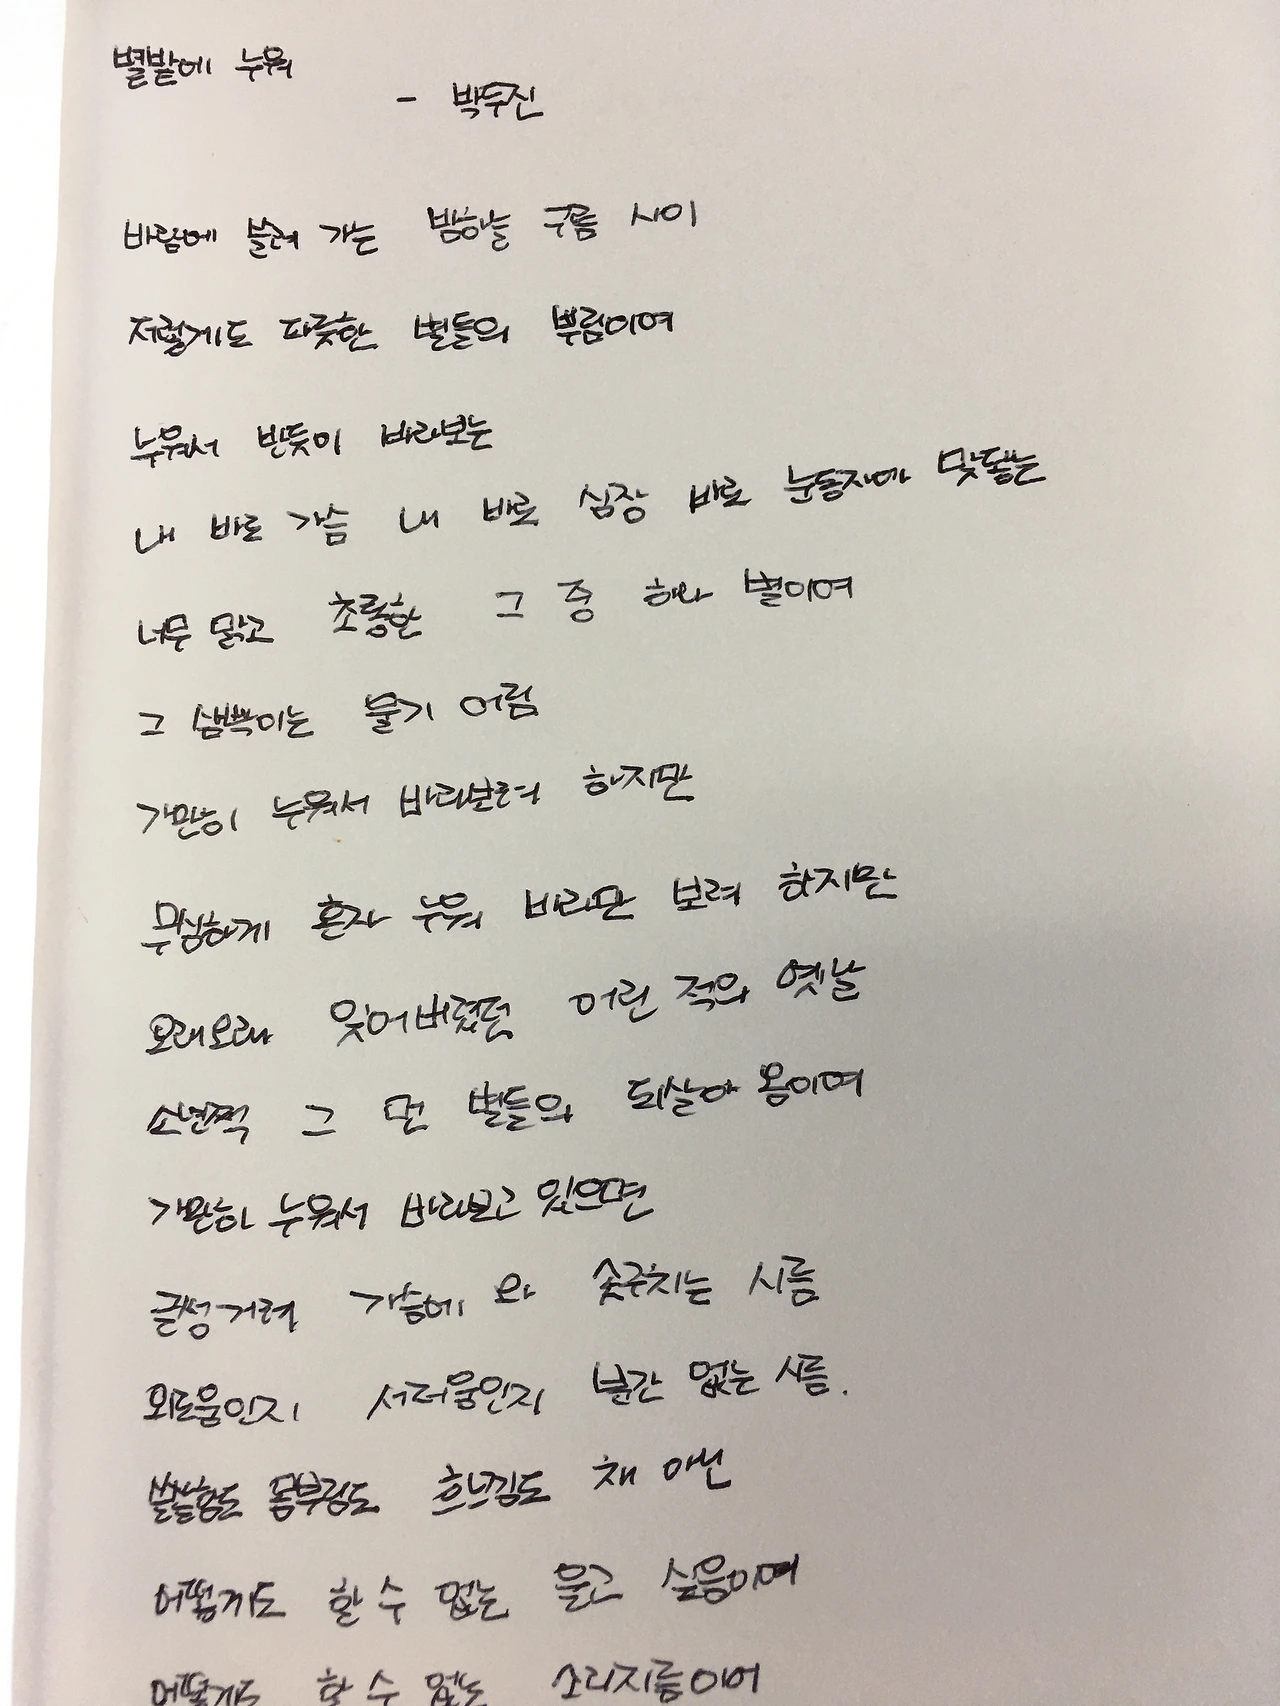 별밭에 누워
- 박두진
바람에 쓸려 가는 밤하늘 구름 사이
저렇게도 파릇한 별들의 뿌림이여
누워서 반듯이 바라보는
내 바로 가슴 내 바로 심장 바로 눈동자에 맞닿는
너무 맑고 초롱한 그 중 하나 별이여
그 삼빡이는 물기 어림
가만히 누워서 바라보려 하지만
무심하게 혼자 누워 바라만 보려 하지만
오래오래 잊어버렸던 어린 적의 옛날
소년쩍 그 먼 별들의 되살아 옴이여
가만히 누워서 바라보고 있으면
글썽거려 가슴에 와 솟구치는 시름
외로움인지 서러움인지 분간 없는 시름.
쓸쓸함도 몸부림도 흐느낌도 채 아닌
어떻게도 할 수 없는 울고 싶음이여
어떻게도 할 수 없는 소리지름이여